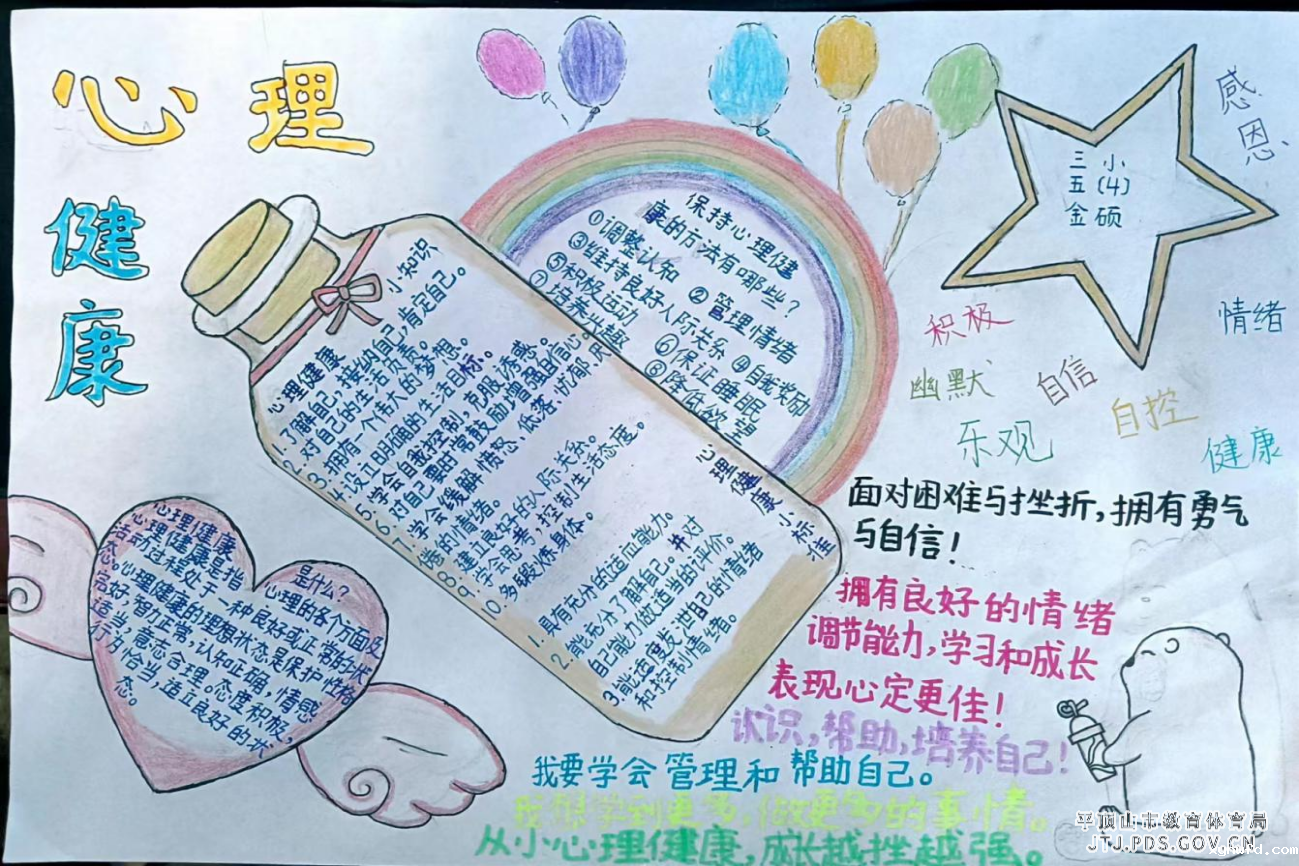 心理
健
康
三小
五(4)
金硕
感
恩
积极
情绪
幽默
自信
自控
乐观
健康
保持心理健
康的方法有哪些？
①调整认和 ②管理情绪
③维持良好人际关系 ④自我奖励
⑤积极运动 ⑥保证睡眠
⑦培养兴趣 ⑧降低欲望
心理健康 小知识
1.了解自己,接纳自己,肯定自己。
2.对自己的生活负责。
3.拥有一个伟大的梦想。
4.设立明确的生活目标。
5.学会自我控制,克服诱惑。
6.对自己要时常鼓励,增强自信心。
7.学会缓解 愤怒、低落、忧郁、厌
倦的情绪。
8.建立良好的人际关系。
9.学会思考,控制生活态度。
10.多锻炼身体。
心理健康小标准
1.具有充分的适应能力。
2.能充分了解自己。并对
自己能力做适当的评价。
3.能适度发泄自己的情绪
和控制情绪。
心理健康 是什么？
心理健康是指心理的各个方面及
活动过程处于一种良好或正常的状
态。心理健康的理想状态是保护性格
完好,智力正常,认知正确,情感
适当,意志合理。态度积极,
行为恰当,适应良好的状
态。
面对困难与挫折,拥有勇气
与自信！
拥有良好的情绪
调节能力,学习和成长
表现心定更佳！
认识,帮助,培养自己！
我要学会管理和帮助自己。
我想学到更多,做更多的事情。
从小心理健康,成越挫越强。
平顶山市教育体育局
JTJ.PDS.GOV.CN